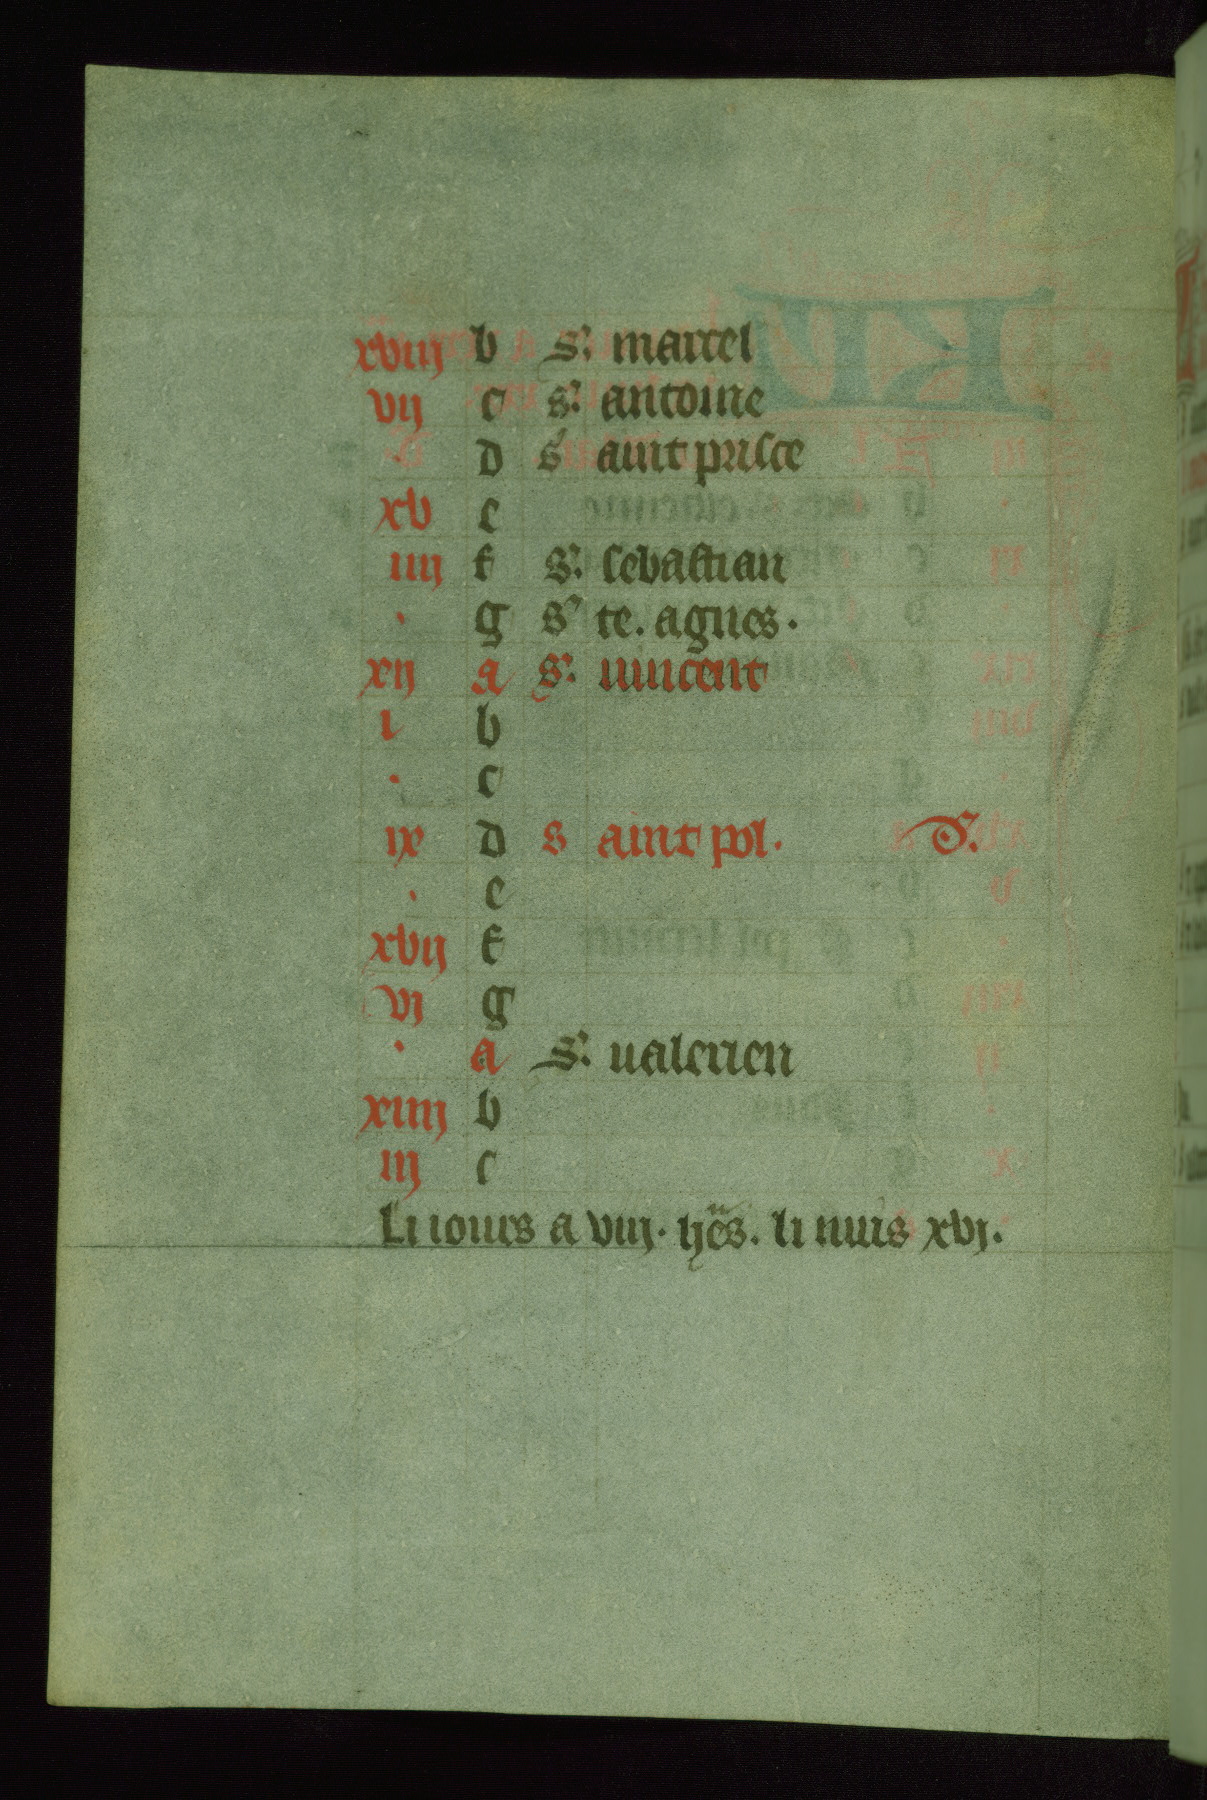 xviij b S. marcel
vij c s. antoine
d s aint prisce
xv e
iiij f S. sebastian
. g S te. agnes.
xij a S. uincent
i b
. c
ix d s aint pol. S.
. e
xvij f
vj g
. a S. ualerien
xiiij b
iij c
Li iours a viij. hes. li nuis xvj.